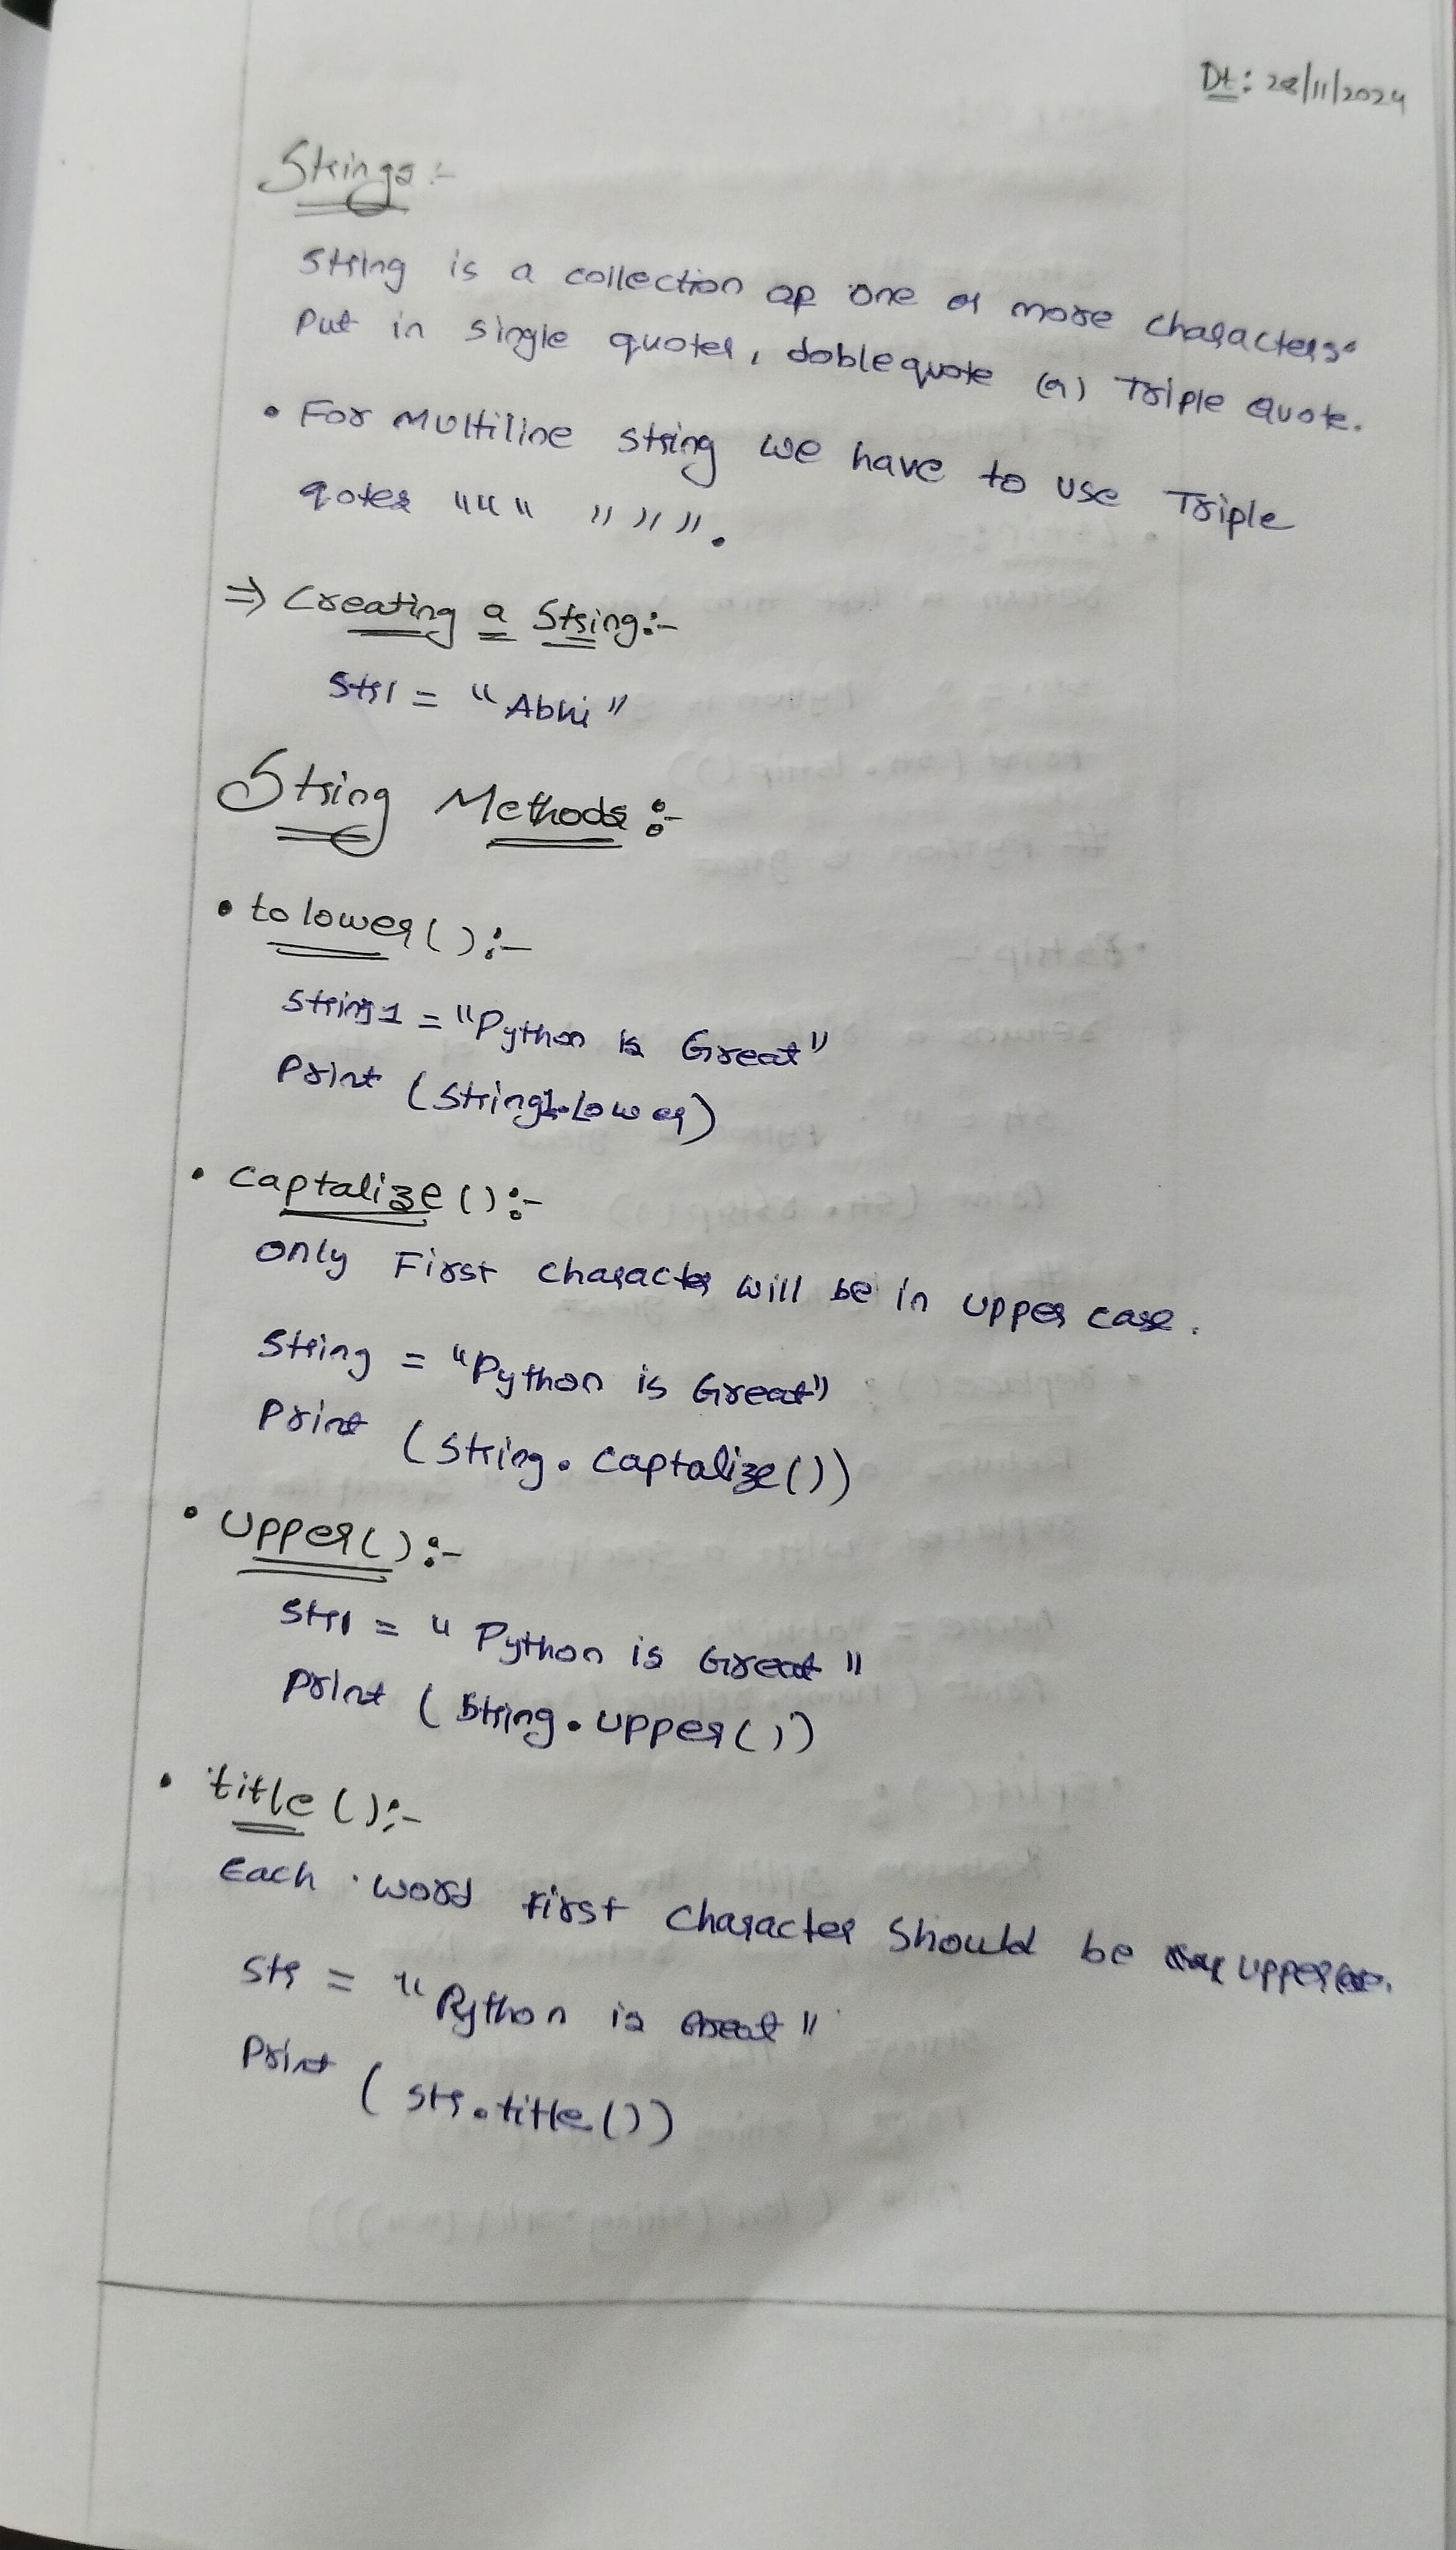 Dt: 28/11/2024
Strings :-
String is a collection of one or more characters.
Put in single quotes, doble quote (or) Triple Quote.
• For Multiline string we have to use Triple
qotes """ """.
⇒ Creating a String:-
Str1 = "Abhi"
String Methods :-
• to lower() :-
String1 = "Python is Great"
Print (String1.lower)
• Captalize () :-
only First character will be in upper case.
String = "Python is Great"
Print (String. Captalize())
• Upper() :-
Str1 = " Python is Great "
Print ( String. upper())
• title () :-
Each word First Character Should be
Str = " Python is Great "
Print ( Str. title())